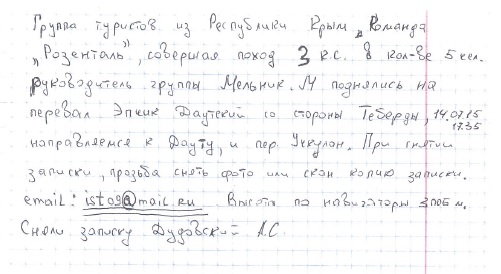 Группа туристов из Республики Крым „Команда
„Розенталь", совершая поход 3 к.с. в кол-ве 5 чел.
руководитель группы Мельник. М поднялись на
перевал Эпчик Даутский со стороны Теберды, 14.07.15
17.35
направляемся к Дауту, и пер. Учкулан. При снятии
записки, прозьба снять фото или скан копию записки.
email: istos@mail.ru Высота по навигатору м.
Сняли записку Дудовский А.С.